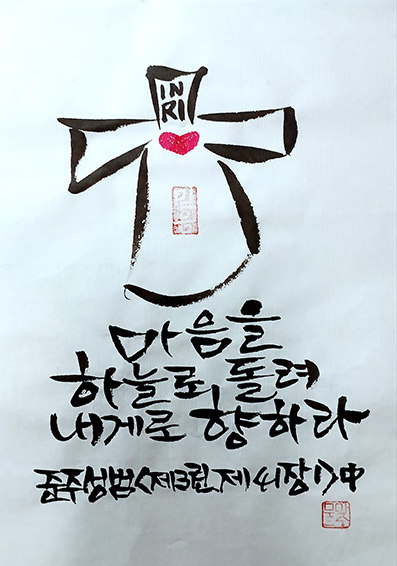 IN
RI
마음을
하늘로 돌려
내게로 향하라
준주성범<제3권 제41장1>中